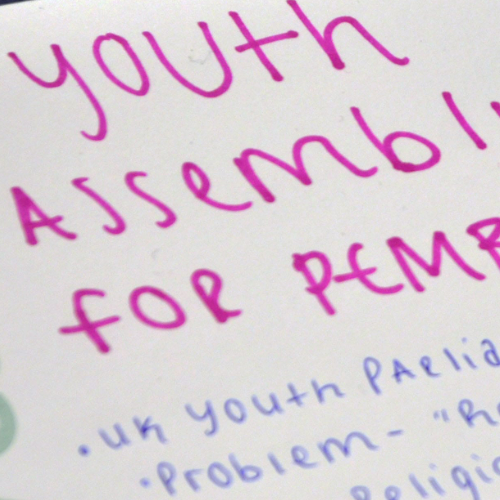 youth
Assembl
for PEMB
• UK youth PARlia
• Problem - "Re
Religio